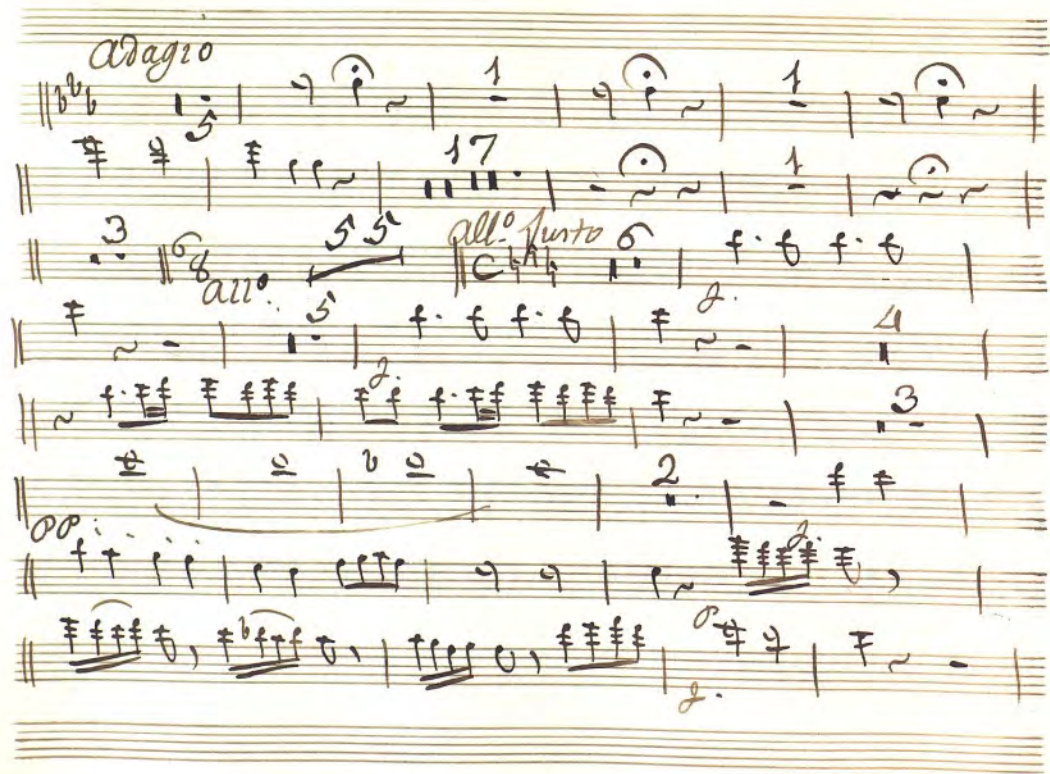 Adagio
5 1 1
17 1
3 6 8 all.º 55 all.º Justo C 6
f.
5 f. 4
3
2
PP.
f.
P
f.